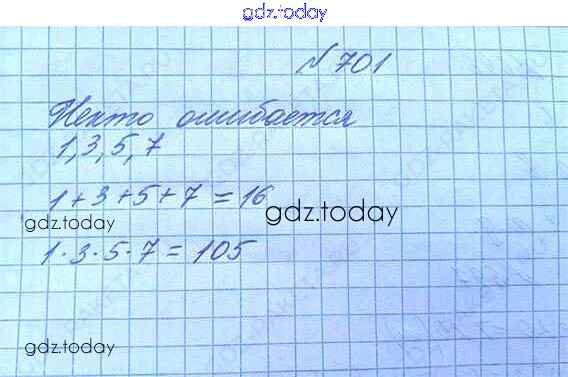 gdz.today
№ 701
Некто ошибается
1, 3, 5, 7
1 + 3 + 5 + 7 = 16
gdz.today
gdz.today
1 · 3 · 5 · 7 = 105
gdz.today